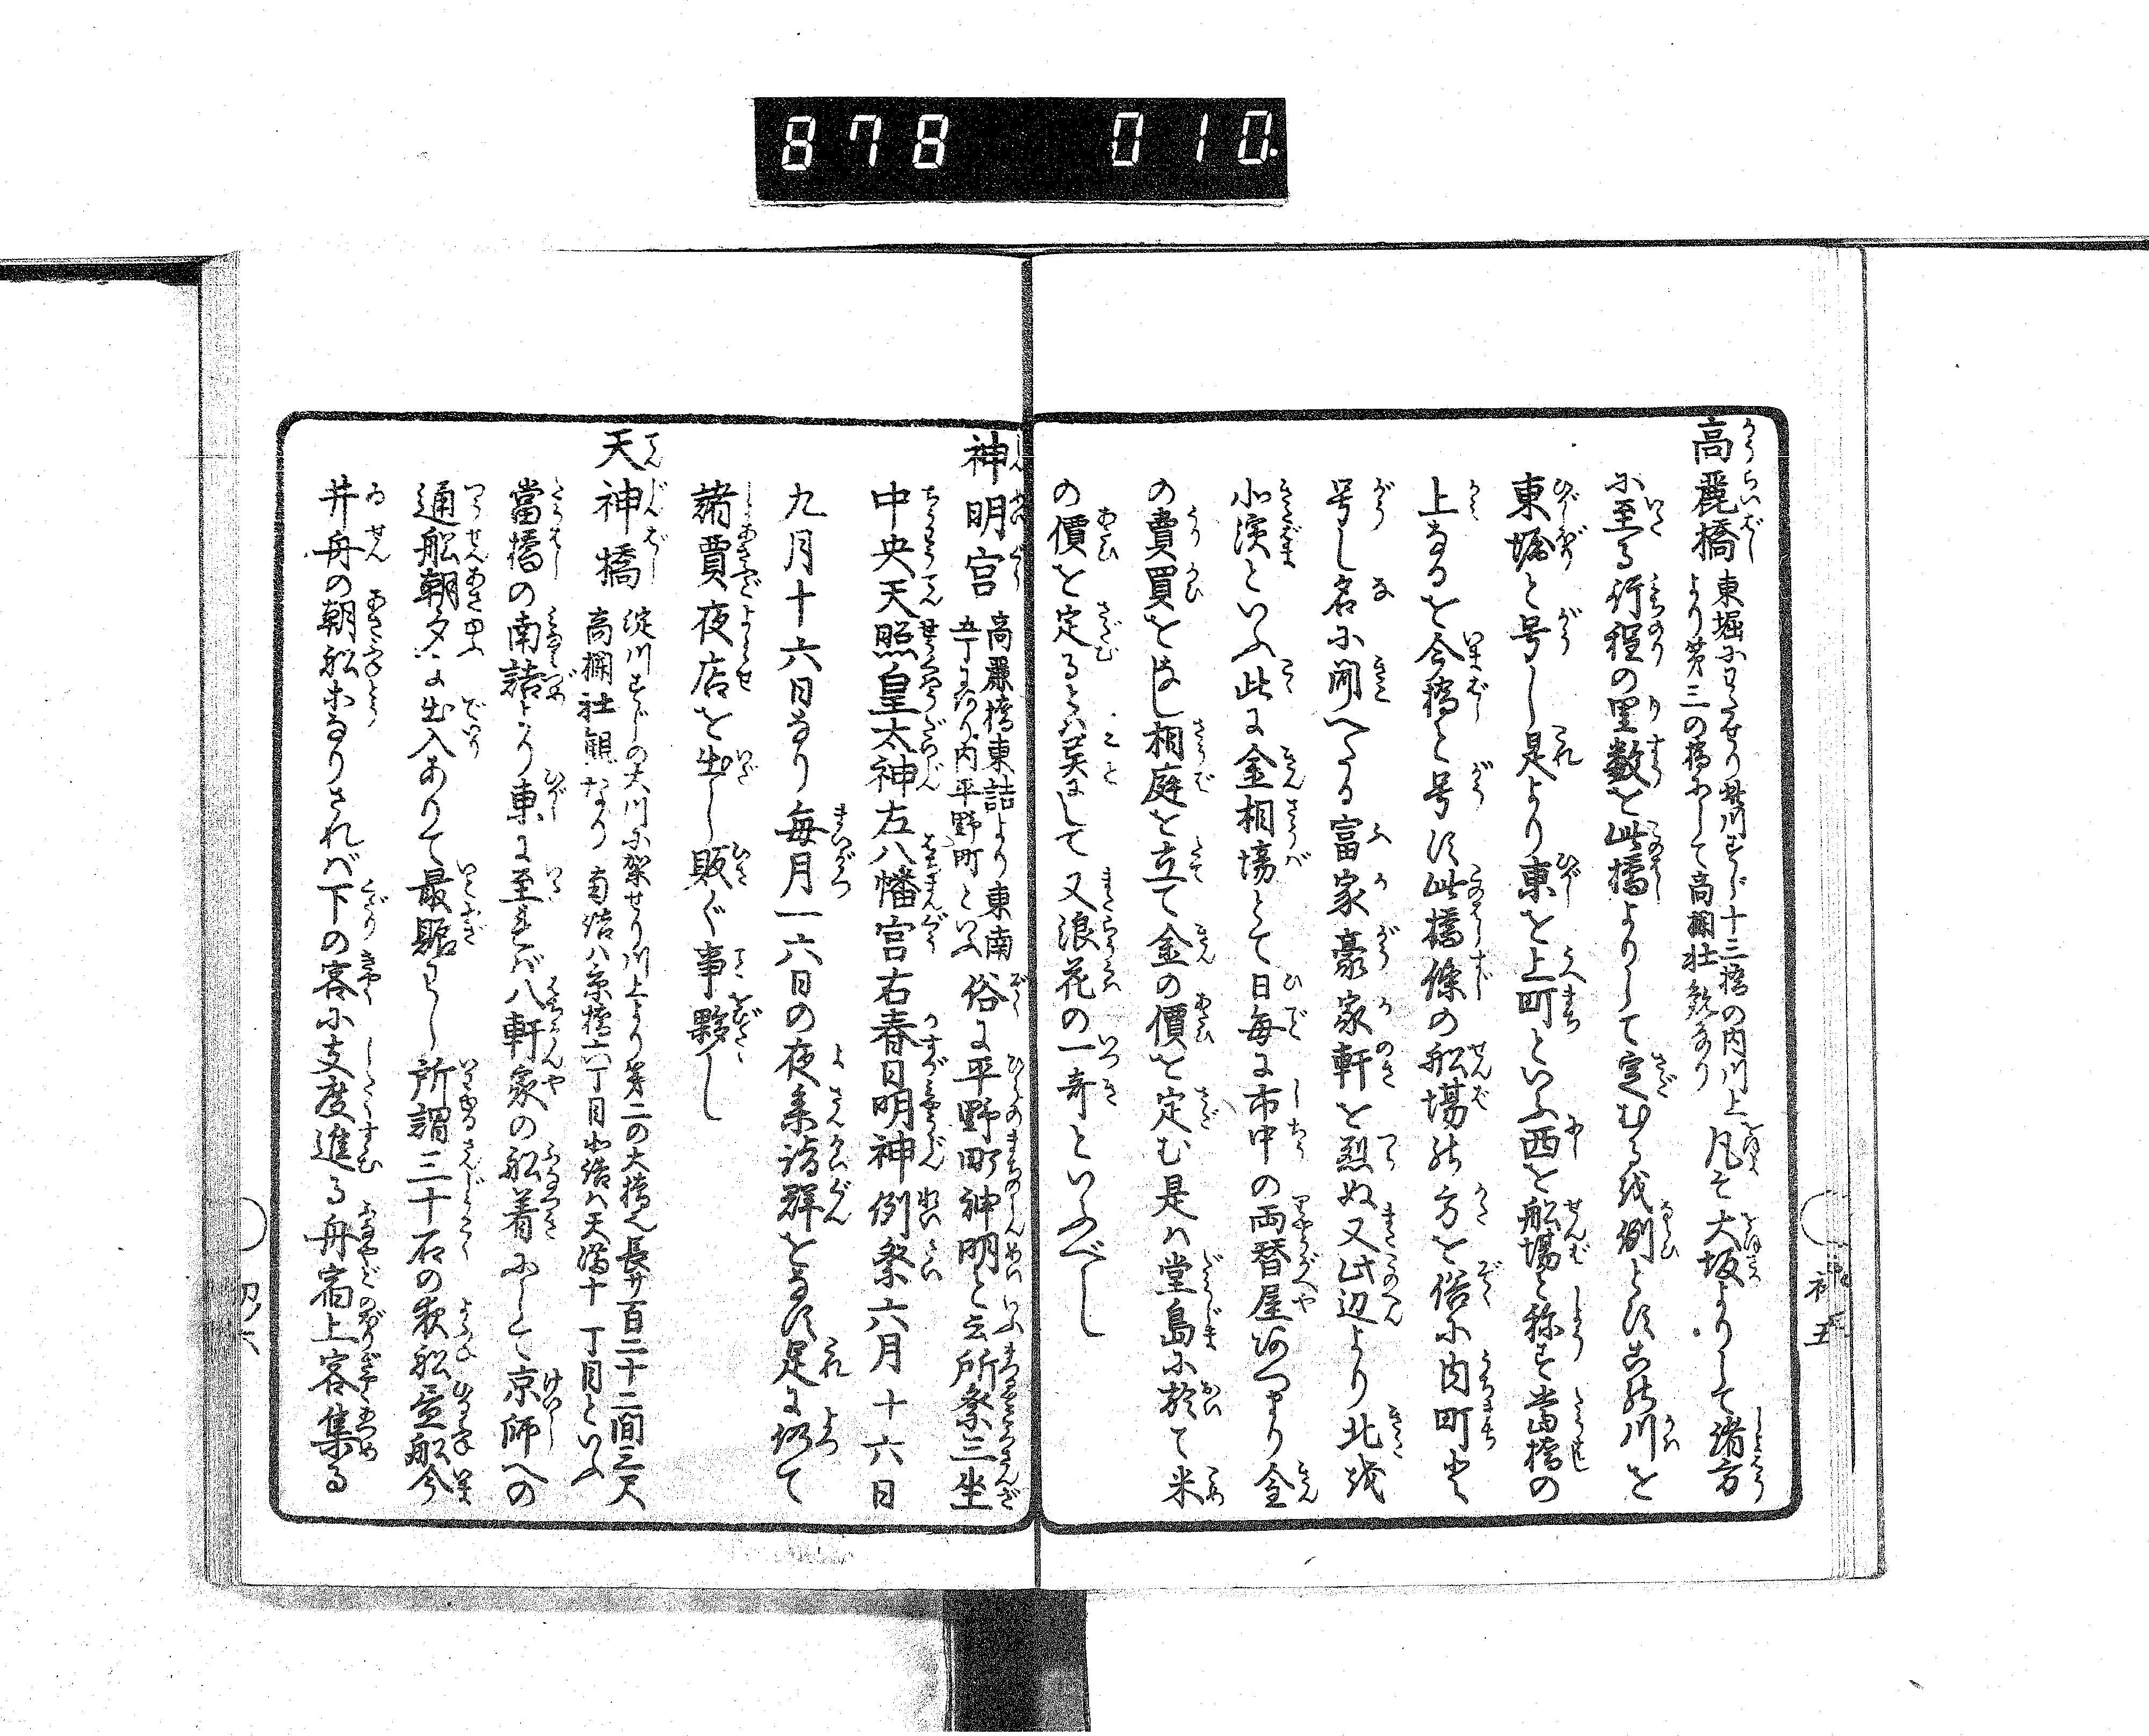 878 010
高麗橋 東堀にわたせり此川すじ十三橋の内川上
より第三の橋にして高欄壮観なり 凡そ大坂よりして諸方
に至る行程の里数を此橋よりして定むる を例とす此川を
東堀と号し是より東を上町といふ西を船場と称す当橋の
上なるを今橋と号す此橋條の船場の方を俗に内町と
号し名に聞へたる富家豪家軒を烈ぬ又此辺より北を
北浜といふ此に金相場とて日毎に市中の両替屋あつまり金
の賣買をなし相庭を立て金の價を定む是ハ堂島に於て米
の價を定ると異にして又浪花の一奇といふべし
初 五
神明宮 高麗橋東詰より東南
五丁にあり内平野町といふ 俗に平野町神明と云所祭三坐
中央天照皇太神左八幡宮右春日明神例祭六月十六日
九月十六日なり毎月一六日の夜参詣群をなす是に仍て
諸賈夜店を出し販ぐ事夥し
天神橋 淀川すじの大川に架せり川上より第二の大橋也長サ百二十二間三尺
高欄壮観なり 南詰ハ京橋六丁目北詰ハ天満十丁目といふ
當橋の南詰より東に至れバ八軒家の船着にして京師への
通船朝夕に出入ありて最賑わし所謂三十石の夜船昼船今
井舟の朝船等なりされバ下の客に支度進る舟宿上客集る
初ノ六